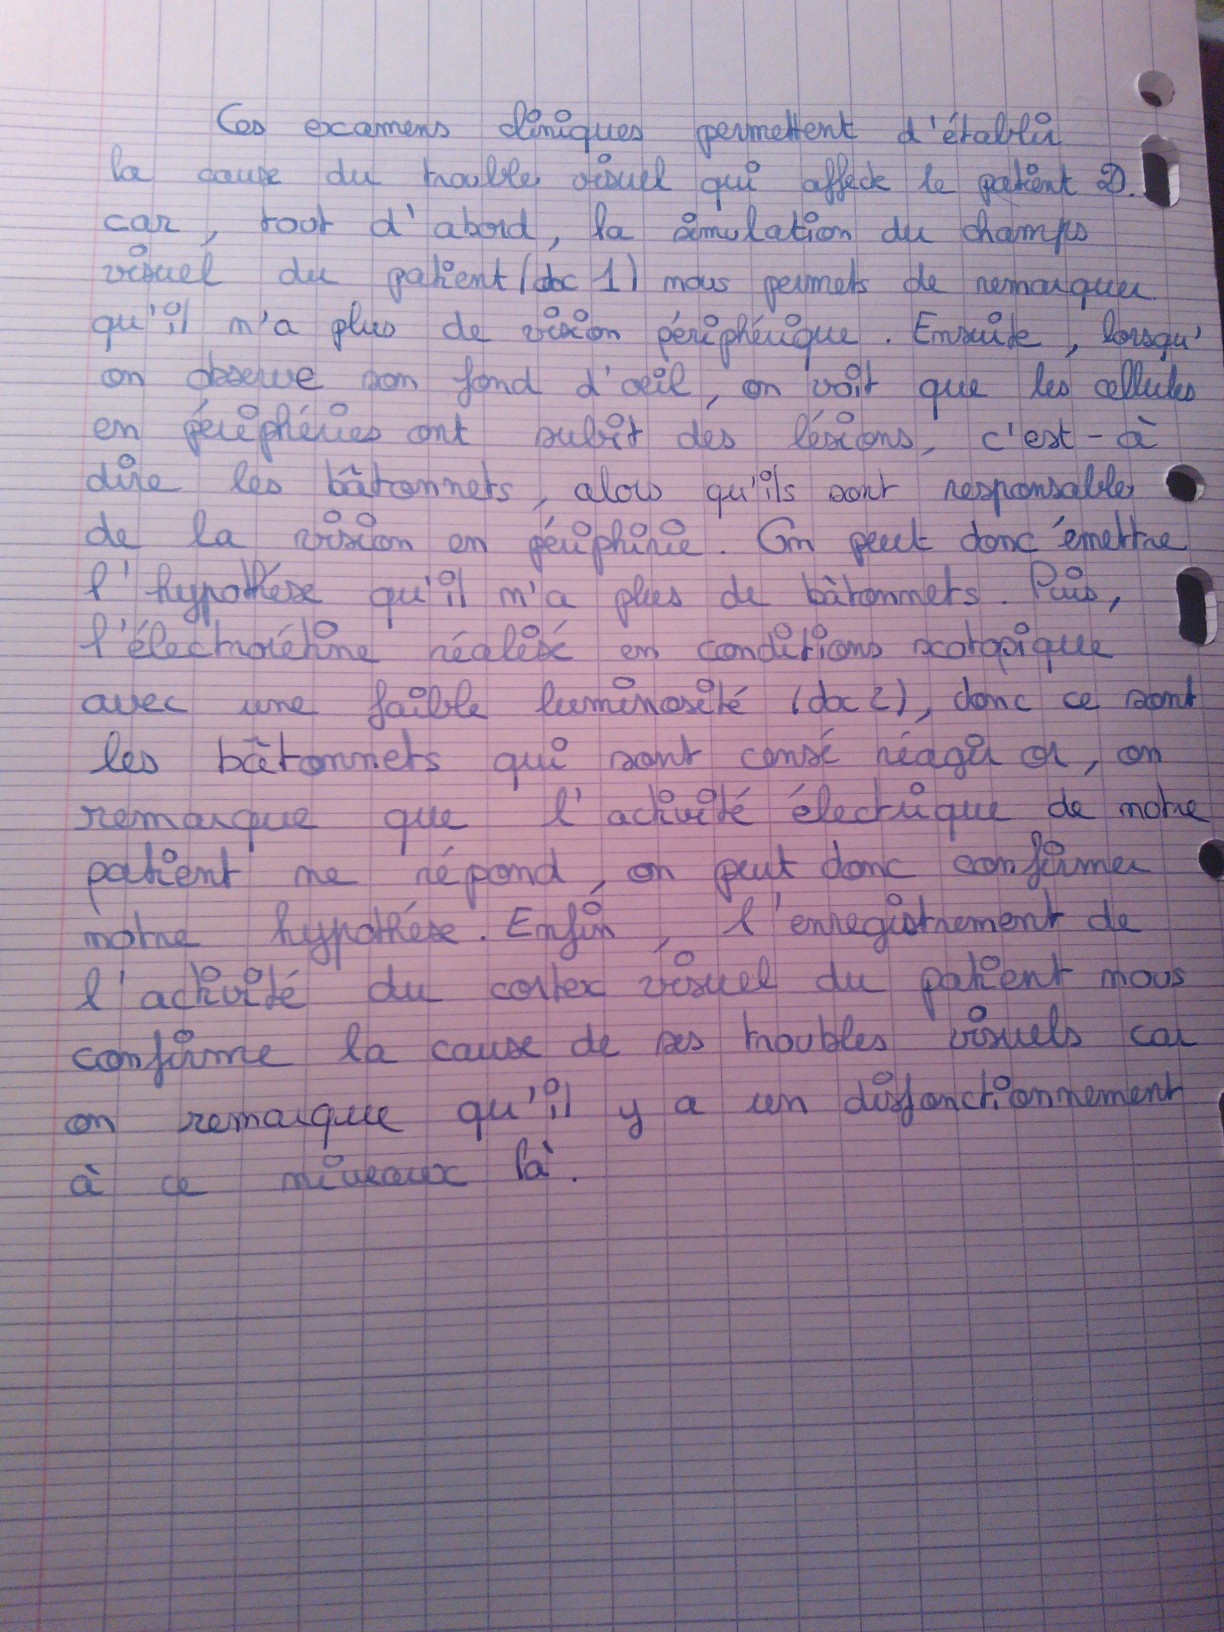 Ces examens cliniques permettent d'établir
la cause du trouble visuel qui affecte le patient D.
car, tout d'abord, la simulation du champs
visuel du patient (doc 1) nous permets de remarquer
qu'il n'a plus de vision périphérique. Ensuite, lorsqu'
on observe son fond d'œil, on voit que les cellules
en périphéries ont subit des lésions, c'est-à
dire les bâtonnets, alors qu'ils sont responsables
de la vision en périphirie. On peut donc émettre
l'hypothèse qu'il n'a plus de bâtonnets. Puis,
l'électrorétine réalisé en conditions scotopique
avec une faible luminosité (doc 2), donc ce sont
les bâtonnets qui sont censé réagir or, on
remarque que l'activité électrique de notre
patient ne répond, on peut donc confirmer
notre hypothèse. Enfin, l'enregistrement de
l'activité du cortex visuel du patient nous
confirme la cause de ses troubles visuels car
on remarque qu'il y a un disfonctionnement
à ce niveaux là.